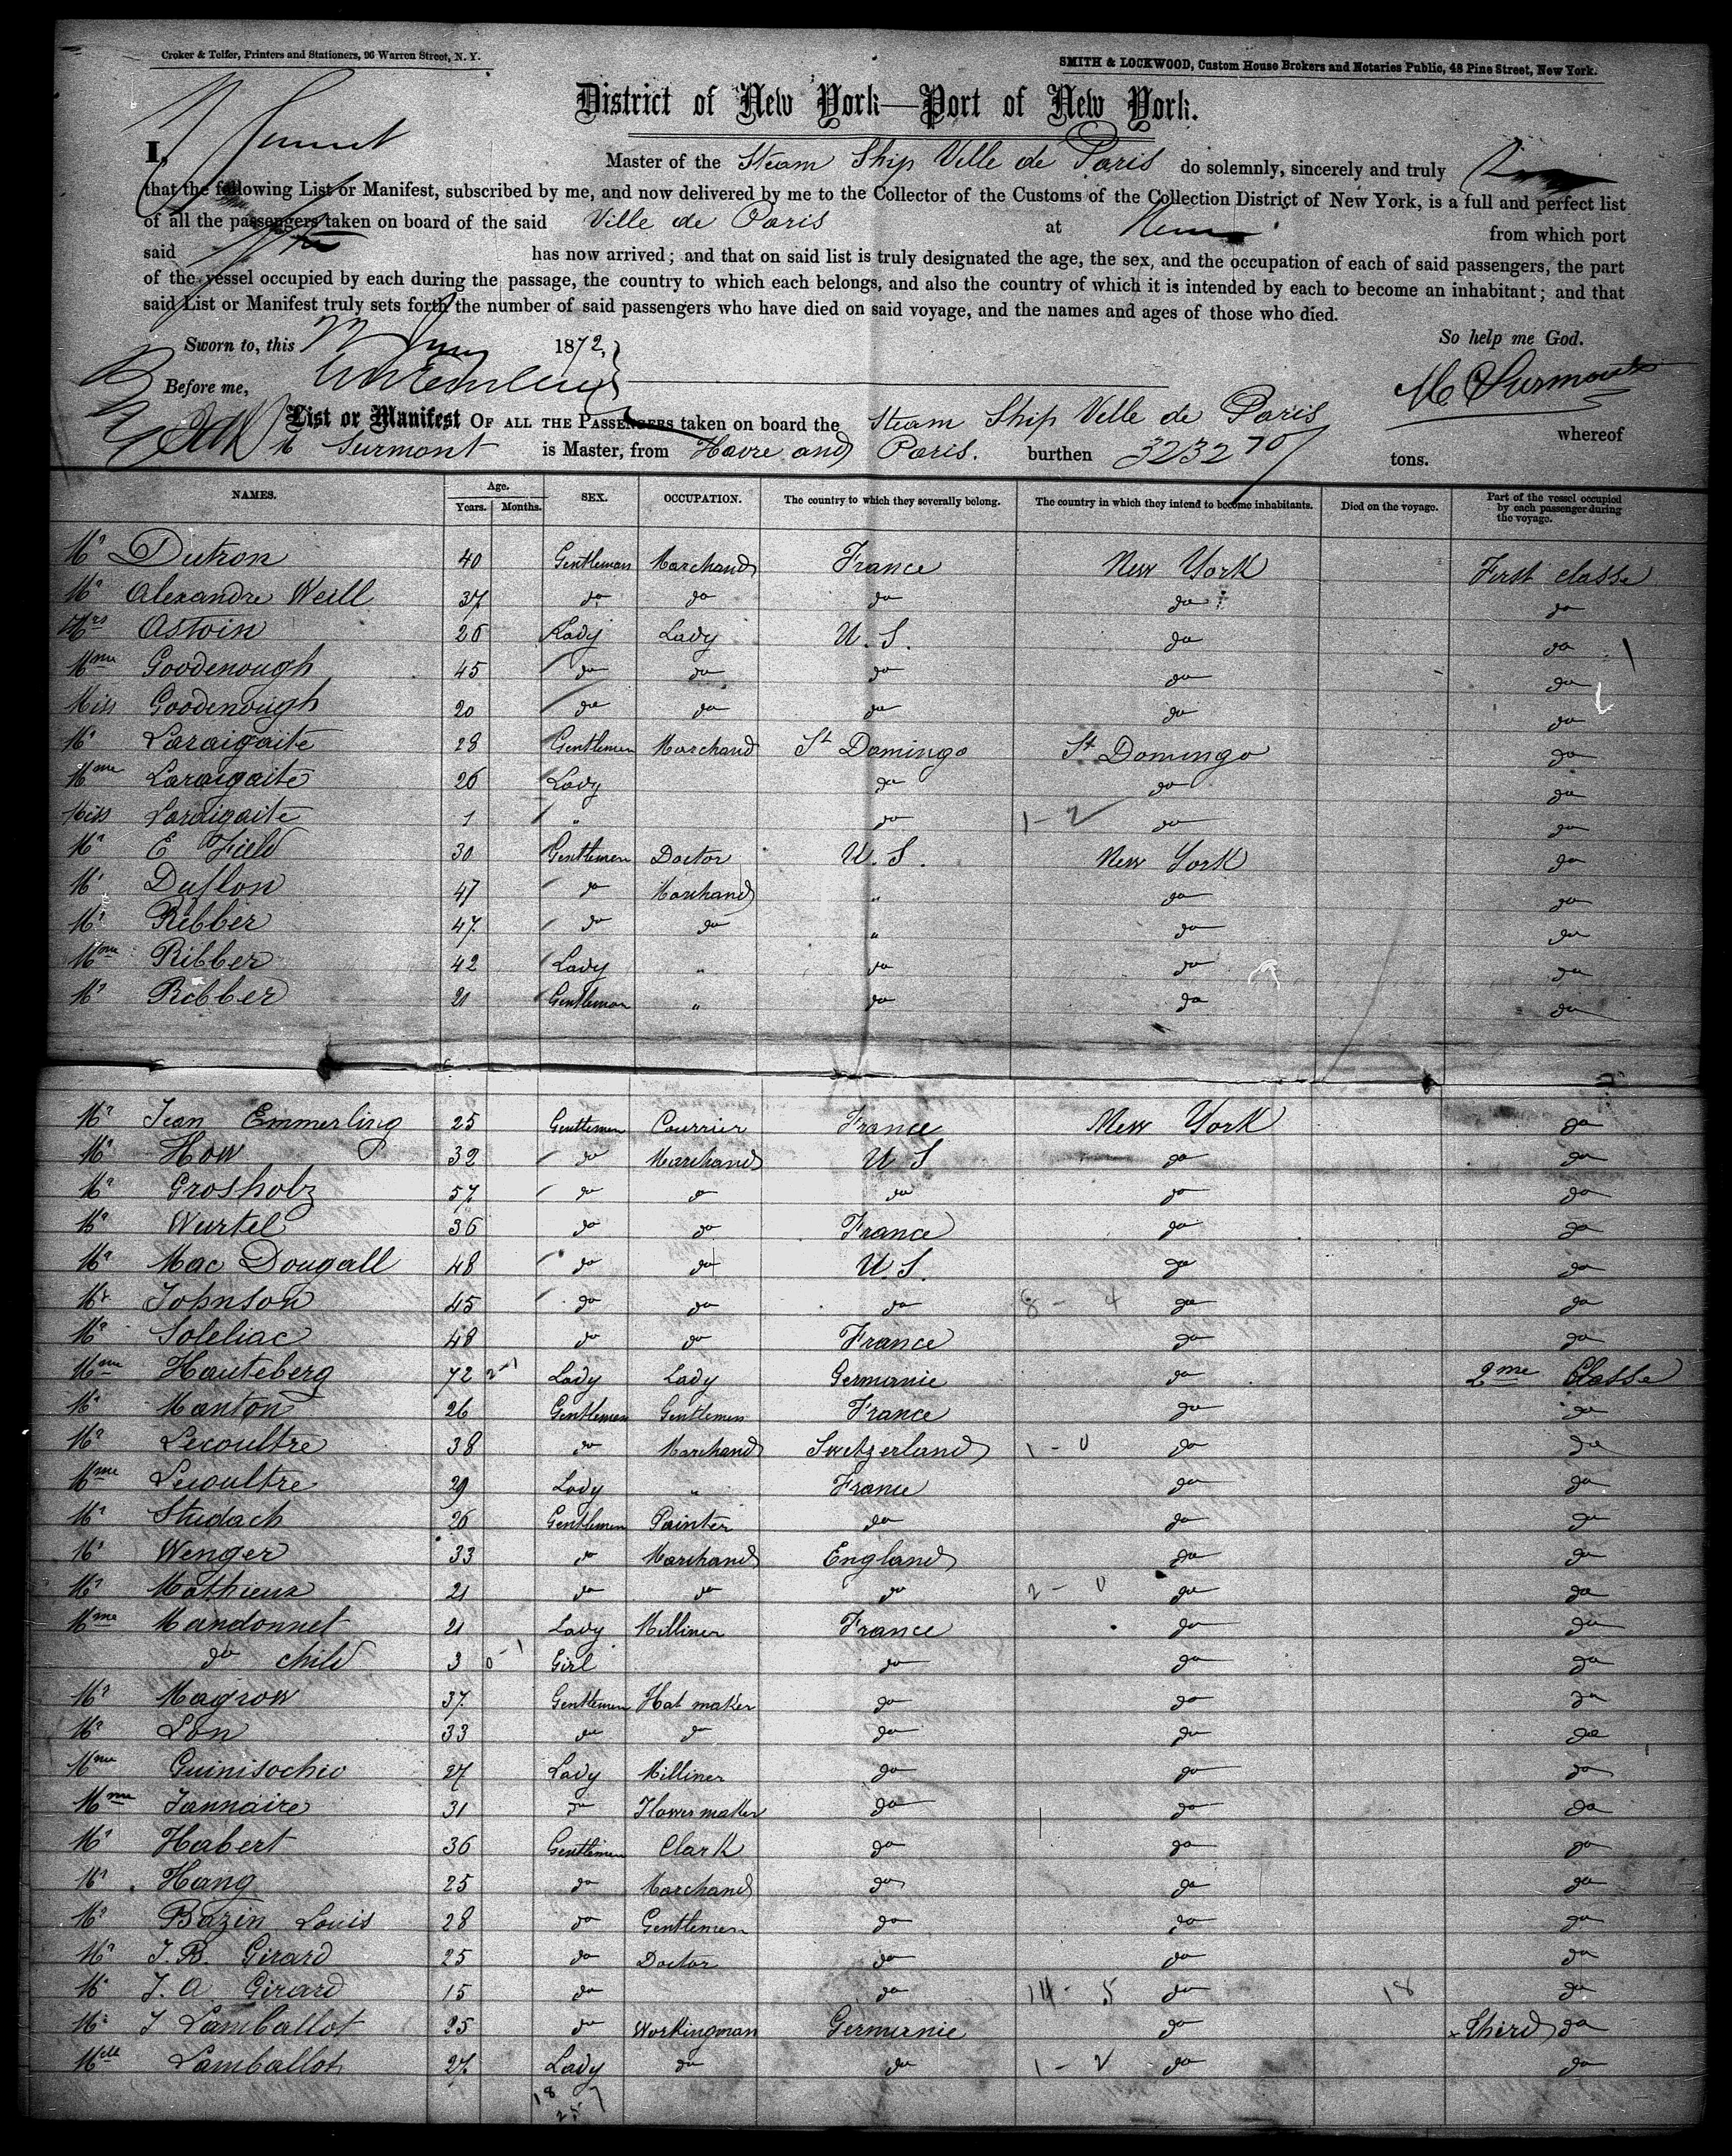 Croker & Telfer, Printers and Stationers, 96 Warren Street, N. Y.
SMITH & LOCKWOOD, Custom House Brokers and Notaries Public, 48 Pine Street, New York.
District of New York—Port of New York.
I, Master of the Steam Ship Ville de Paris do solemnly, sincerely and truly
that the following List or Manifest, subscribed by me, and now delivered by me to the Collector of the Customs of the Collection District of New York, is a full and perfect list
of all the passengers taken on board of the said Ville de Paris at from which port
said has now arrived; and that on said list is truly designated the age, the sex, and the occupation of each of said passengers, the part
of the vessel occupied by each during the passage, the country to which each belongs, and also the country of which it is intended by each to become an inhabitant; and that
said List or Manifest truly sets forth the number of said passengers who have died on said voyage, and the names and ages of those who died.
So help me God.
Sworn to, this 1872,
Before me, Surmont
List or Manifest OF ALL THE PASSENGERS taken on board the Steam Ship Ville de Paris whereof
Surmont is Master, from Havre and Paris. burthen 3232 70/ tons.
NAMES. Age. Years. Months. SEX. OCCUPATION. The country to which they severally belong. The country in which they intend to become inhabitants. Died on the voyage. Part of the vessel occupied by each passenger during the voyage.
Mr Dutron 40 Gentleman Marchand France New York First classe
Mr Alexandre Weill 37 do do do do do
Mrs Astoin 26 Lady Lady U. S. do do
Mme Goodenough 45 do do do do do
Miss Goodenough 20 do do do do do
Mr Laraigaite 28 Gentlemen Marchand St Domingo St Domingo do
Mme Laraigaite 26 Lady do do do
Miss Laraigaite 1 " do 1-2 do do
Mr E Field 30 Gentlemen Doctor U. S. New York do
Mr Duflon 47 do Marchand " do do
Mr Ribber 47 do do " do do
Mme Ribber 42 Lady " do do do
Mr Ribber 21 Gentleman " do do do
Mr Jean Emmerling 25 Gentlemen Courrier France New York do
Mr How 32 do Marchand U S do do
Mr Grosholz 57 do do do do do
Mr Wurtel 36 do do France do do
Mr Mac Dougall 48 do do U. S. do do
Mr Johnson 45 do do do 8 - 4 do do
Mr Soleliac 48 do do France do do
Mme Hauteberg 72 2-1 Lady Lady Germanie do 2me Classe
Mr Manton 26 Gentlemen Gentlemen France do do
Mr Lecoultre 38 do Marchand Switzerland 1 - 0 do do
Mme Lecoultre 29 Lady " France do do
Mr Studach 26 Gentlemen Painter do do do
Mr Wenger 33 do Marchand England do do
Mr Mathieux 21 do do do 2 - 0 do do
Mme Mandonnet 21 Lady Milliner France do do
do child 3 0-1 Girl do do do
Mr Magrow 37 Gentlemen Hat maker do do do
Mr Lon 33 do do do do do
Mme Guinisochio 27 Lady Milliner do do do
Mme Jannaire 31 do Flower maker do do do
Mr Habert 36 Gentlemen Clark do do do
Mr Hang 25 do Marchand do do do
Mr Bazin Louis 28 do Gentlemen do do do
Mr J. B. Girard 25 do Doctor do do do
Mr J. A. Girard 15 do do 14 - 5 do 18 do
Mr J Lamballot 25 do Workingman Germanie do Third do
Mlle Lamballot 27 Lady do do 1 - 2 do do
18 7
25